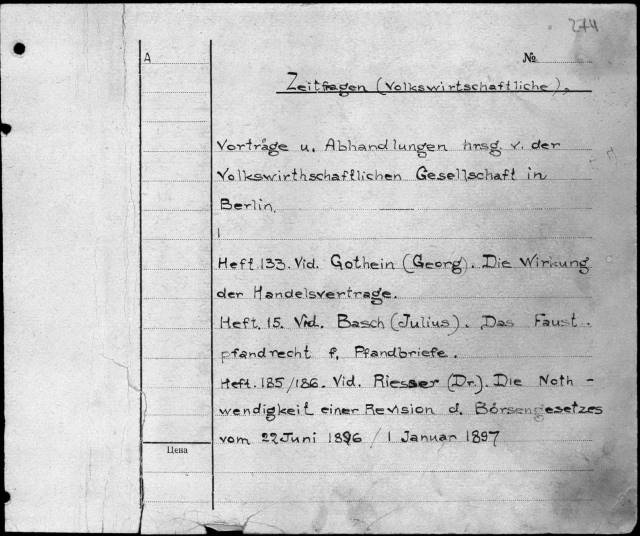 274
A
№
Zeitfragen (Volkswirtschaftliche),
Vorträge u. Abhandlungen hrsg. v. der
Volkswirthschaftlichen Gesellschaft in
Berlin.
Heft. 133. Vid. Gothein (Georg). Die Wirkung
der Handelsvertrage.
Heft. 15. Vid. Basch (Julius). Das Faust-
pfandrecht f. Pfandbriefe.
Heft. 185/186. Vid. Riesser (Dr.). Die Noth-
wendigkeit einer Revision d. Börsengesetzes
vom 22 Juni 1896 / 1 Januar 1897
Цена